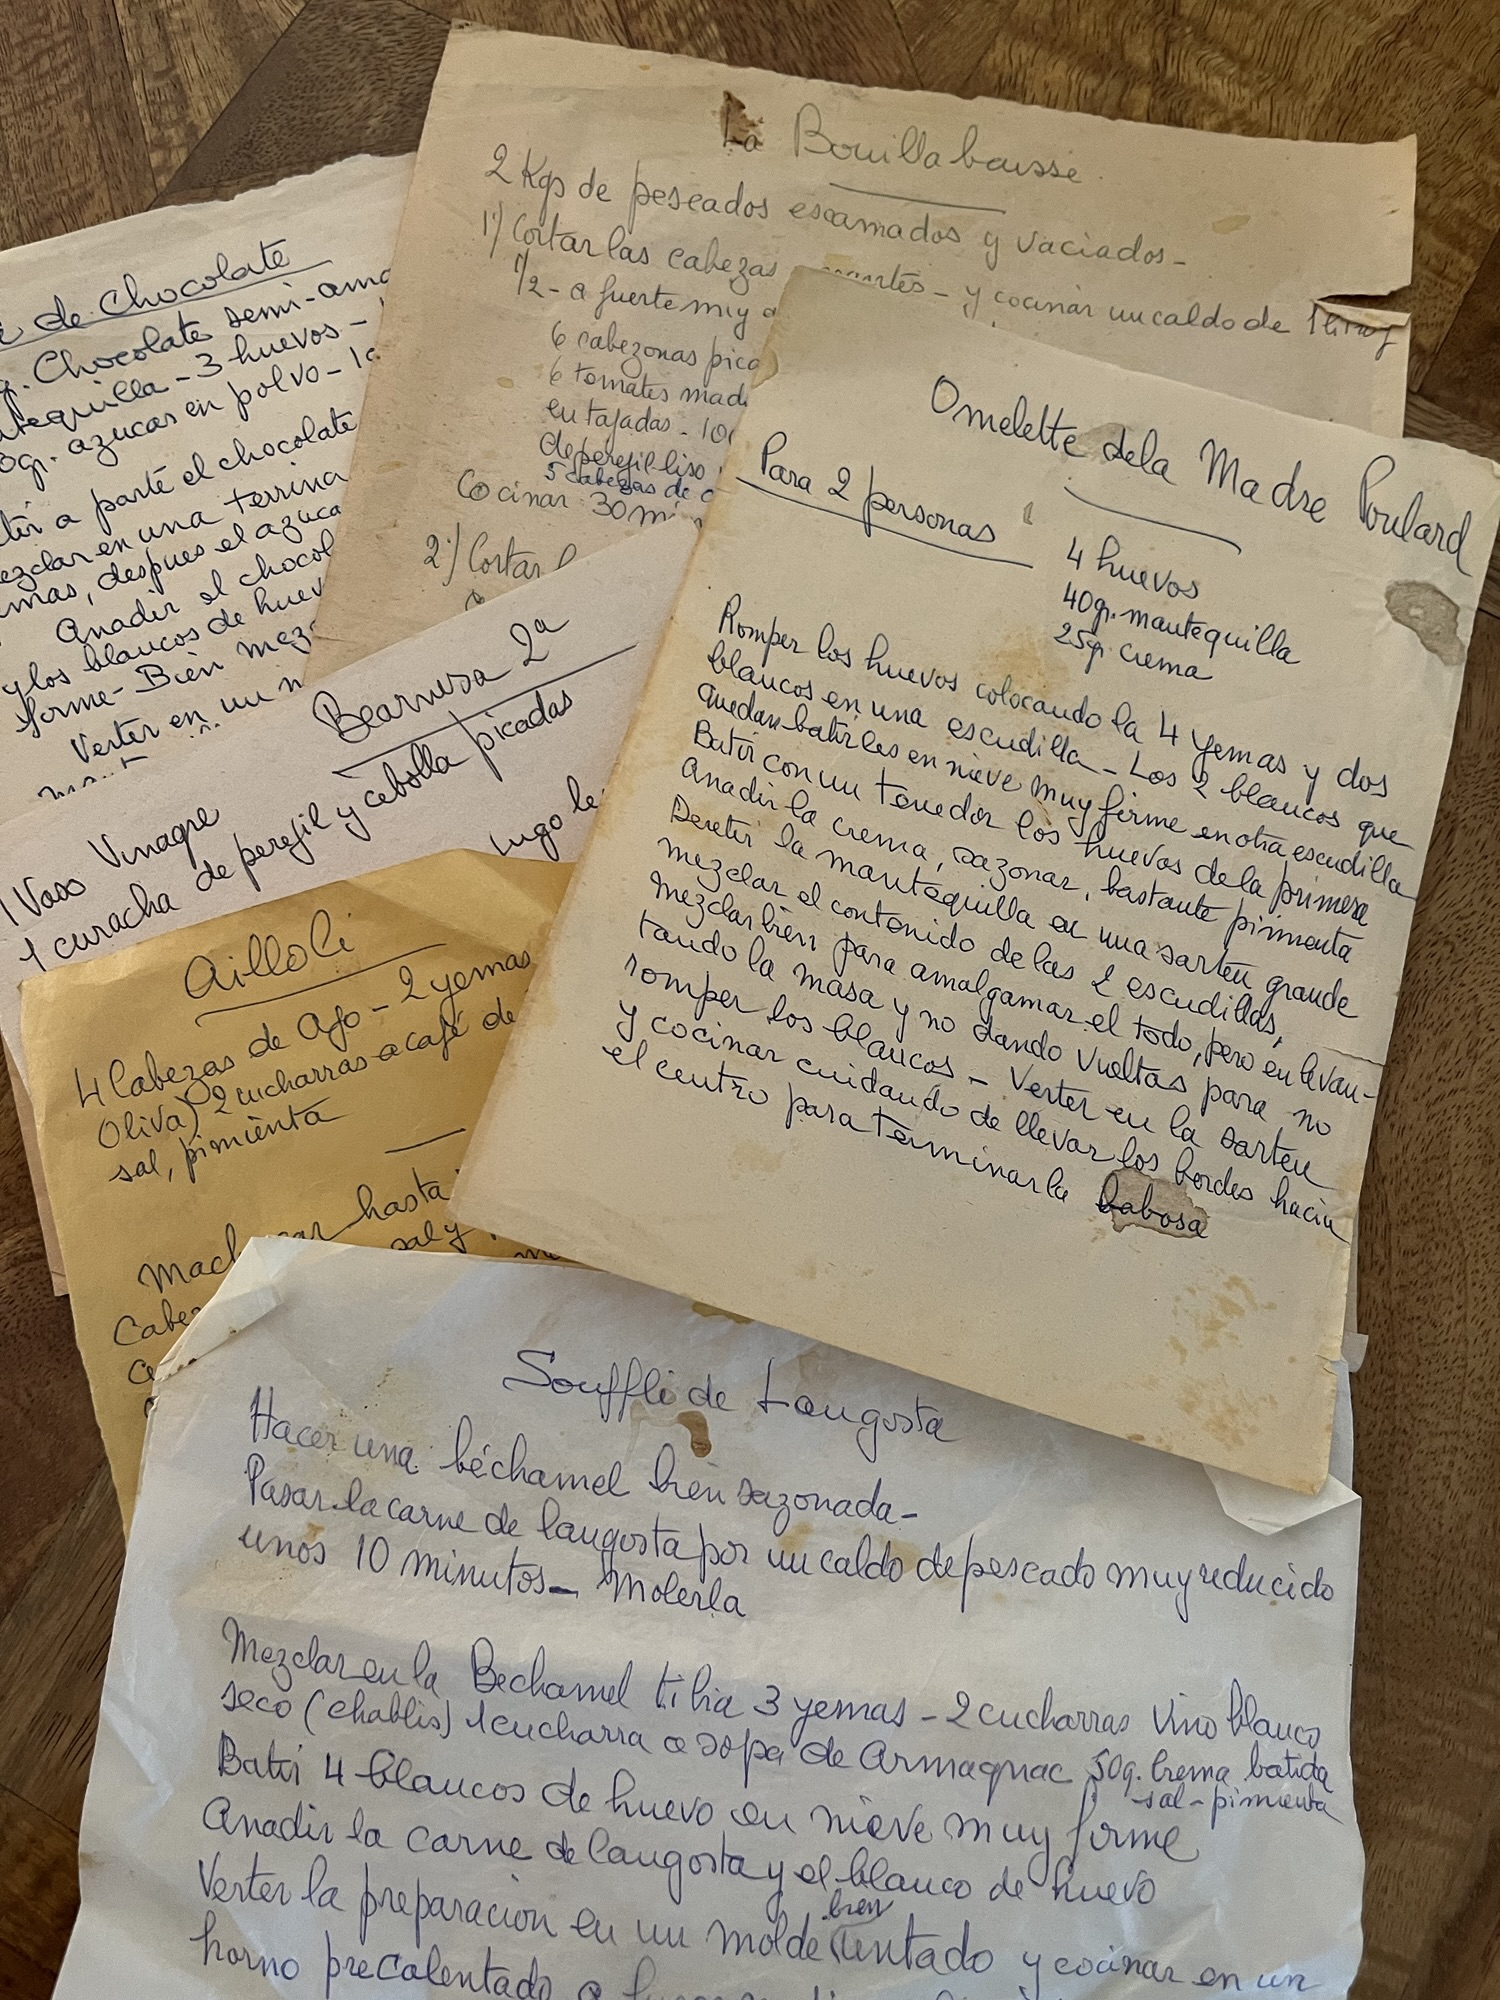 La Bouillabaisse
2 Kgs de peseados escamados y vaciados-
1º) Cortar las cabezas - y cocinar un caldo de 1
1/2 - a fuerte muy
6 cabezonas pica
6 tomates mad
en tajadas - 10
de perejil liso
5 cabezas de c
Cocinar 30 min
2º) Cortar l
de Chocolate
g. Chocolate semi-ama
tequilla - 3 huevos -
0gr. azucar en polvo - 1c
tir a parté el chocolate
ezclar en una terrina
mas, despues el azuca
Anadir el chocol
y los blancos de huev
forme - Bien mez
Verter en un m
Bearnesa 2ª
1 Vaso Vinagre
1 curacha de perejil y cebolla picadas
lugo le
Ailloli
4 Cabezas de Ajo - 2 yemas
Oliva) 2 cucharras a café de
sal, pimienta
Mach car hasta
sal y
Cabez
Omelette dela Madre Poulard
Para 2 personas
4 huevos
40gr. mantequilla
25gr. crema
Romper los huevos colocando la 4 yemas y dos
blancos en una escudilla - Los 2 blancos que
quedan batirles en nieve muy firme en otra escudilla
Batir con un tenedor los huevos de la primera
Anadir la crema, sazonar, bastante pimienta
Deretir la mantequilla en una sarten grande
mezclar el contenido de las 2 escudillas,
Mezclar bien para amalgamar el todo, pero en levan-
tando la masa y no dando vueltas para no
romper los blancos - Verter en la sarten
y cocinar cuidando de llevar los bordes hacia
el centro para terminar la babosa
Souffli de Langosta
Hacer una béchamel bien sazonada-
Pasar la carne de langosta por un caldo de pescado muy reducido
unos 10 minutos - Molerla
Mezclar en la Bechamel tibia 3 yemas - 2 cucharras Vino blanco
seco (chablis) 1 cucharra a sopa de Armagnac 50g. Crema batida
sal - pimienta
Batir 4 blancos de huevo en nieve muy firme
Anadir la carne de langosta y el blanco de huevo
bien
Verter la preparacion en un molde untado y cocinar en un
horno precalentado a